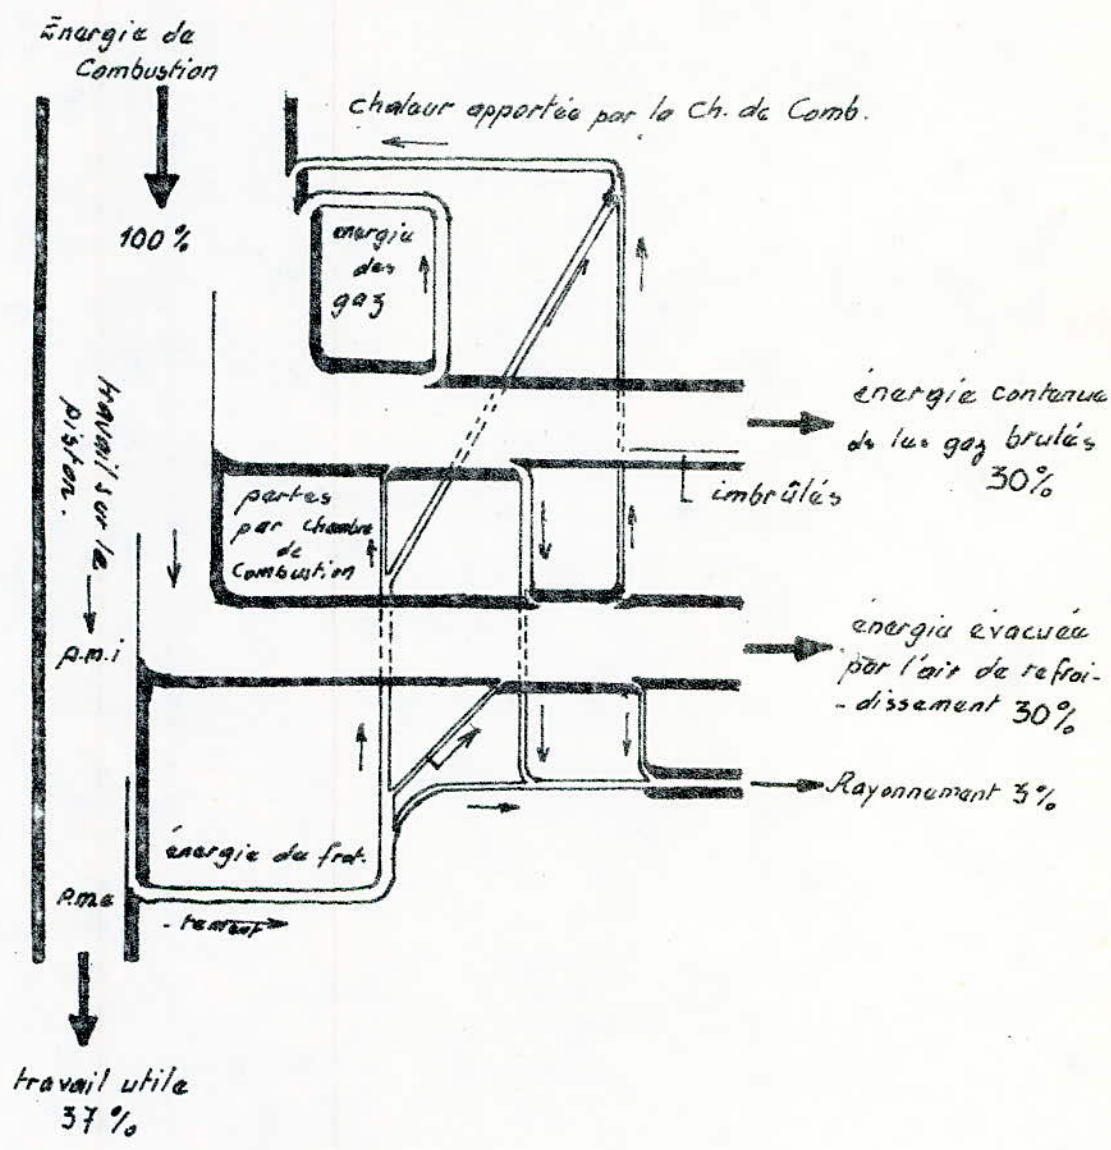 Énergie de
Combustion
chaleur apportée par la Ch. de Comb.
100%
énergie
des
gaz
travail sur le
piston.
énergie contenue
ds les gaz brulés
30%
imbrûlés
pertes
par chambre
de
Combustion
p.m.i
énergie évacuée
par l'air de refroi-
-dissement 30%
Rayonnement 3%
énergie de frot.
p.m.e
-tement
travail utile
37%